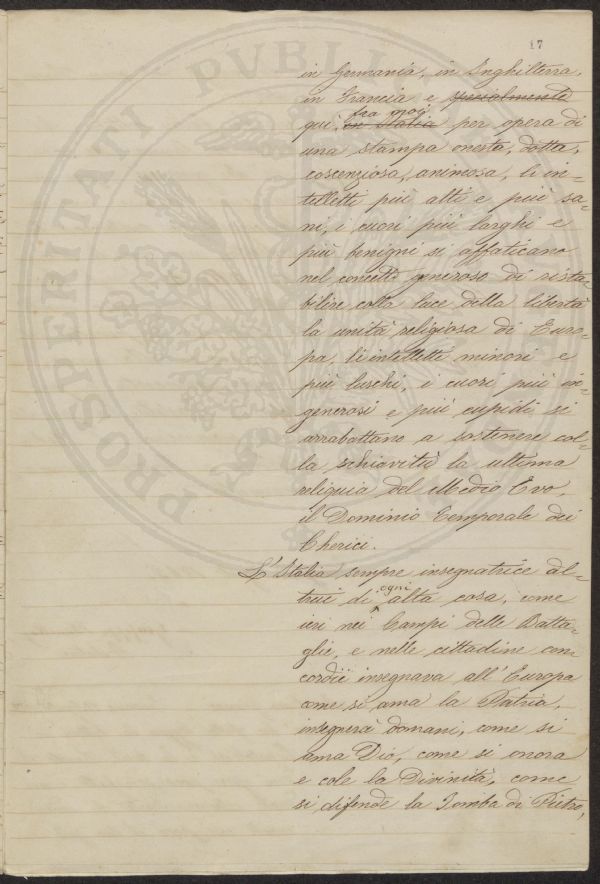 17
in Germania, in Inghilterra,
in Francia e specialmente
fra noi
quì, in Italia per opera di
una stampa onesta, dotta,
coscenziosa, animosa, li in-
telletti più alti e più sa-
ni, i cuori più larghi e
più benigni si affaticano
nel concetto generoso di rista-
bilire colla luce della libertà
la unità religiosa di Euro-
pa, li intelletti minori e
più luschi, i cuori più in-
generosi e più cupidi si
arrabattano a sostenere col-
la schiavitù la ultima
reliquia del Medio Evo,
il Dominio Temporale dei
Cherici.
L'Italia sempre insegnatrice al-
ogni
trui di alta cosa, come
ieri nei Campi delle Batta-
glie, e nelle cittadine con-
cordie insegnava all'Europa
come si ama la Patria,
insegnerà domani, come si
ama Dio, come si onora
e cole la Divinità, come
si difende la Tomba di Pietro,
PROSPERITATI PVBLI